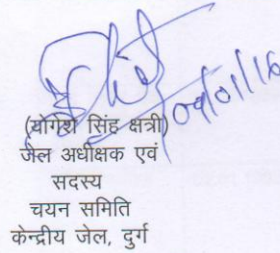 09/01/16
(योगेश सिंह क्षत्री)
जेल अधीक्षक एवं
सदस्य
चयन समिति
केन्द्रीय जेल, दुर्ग